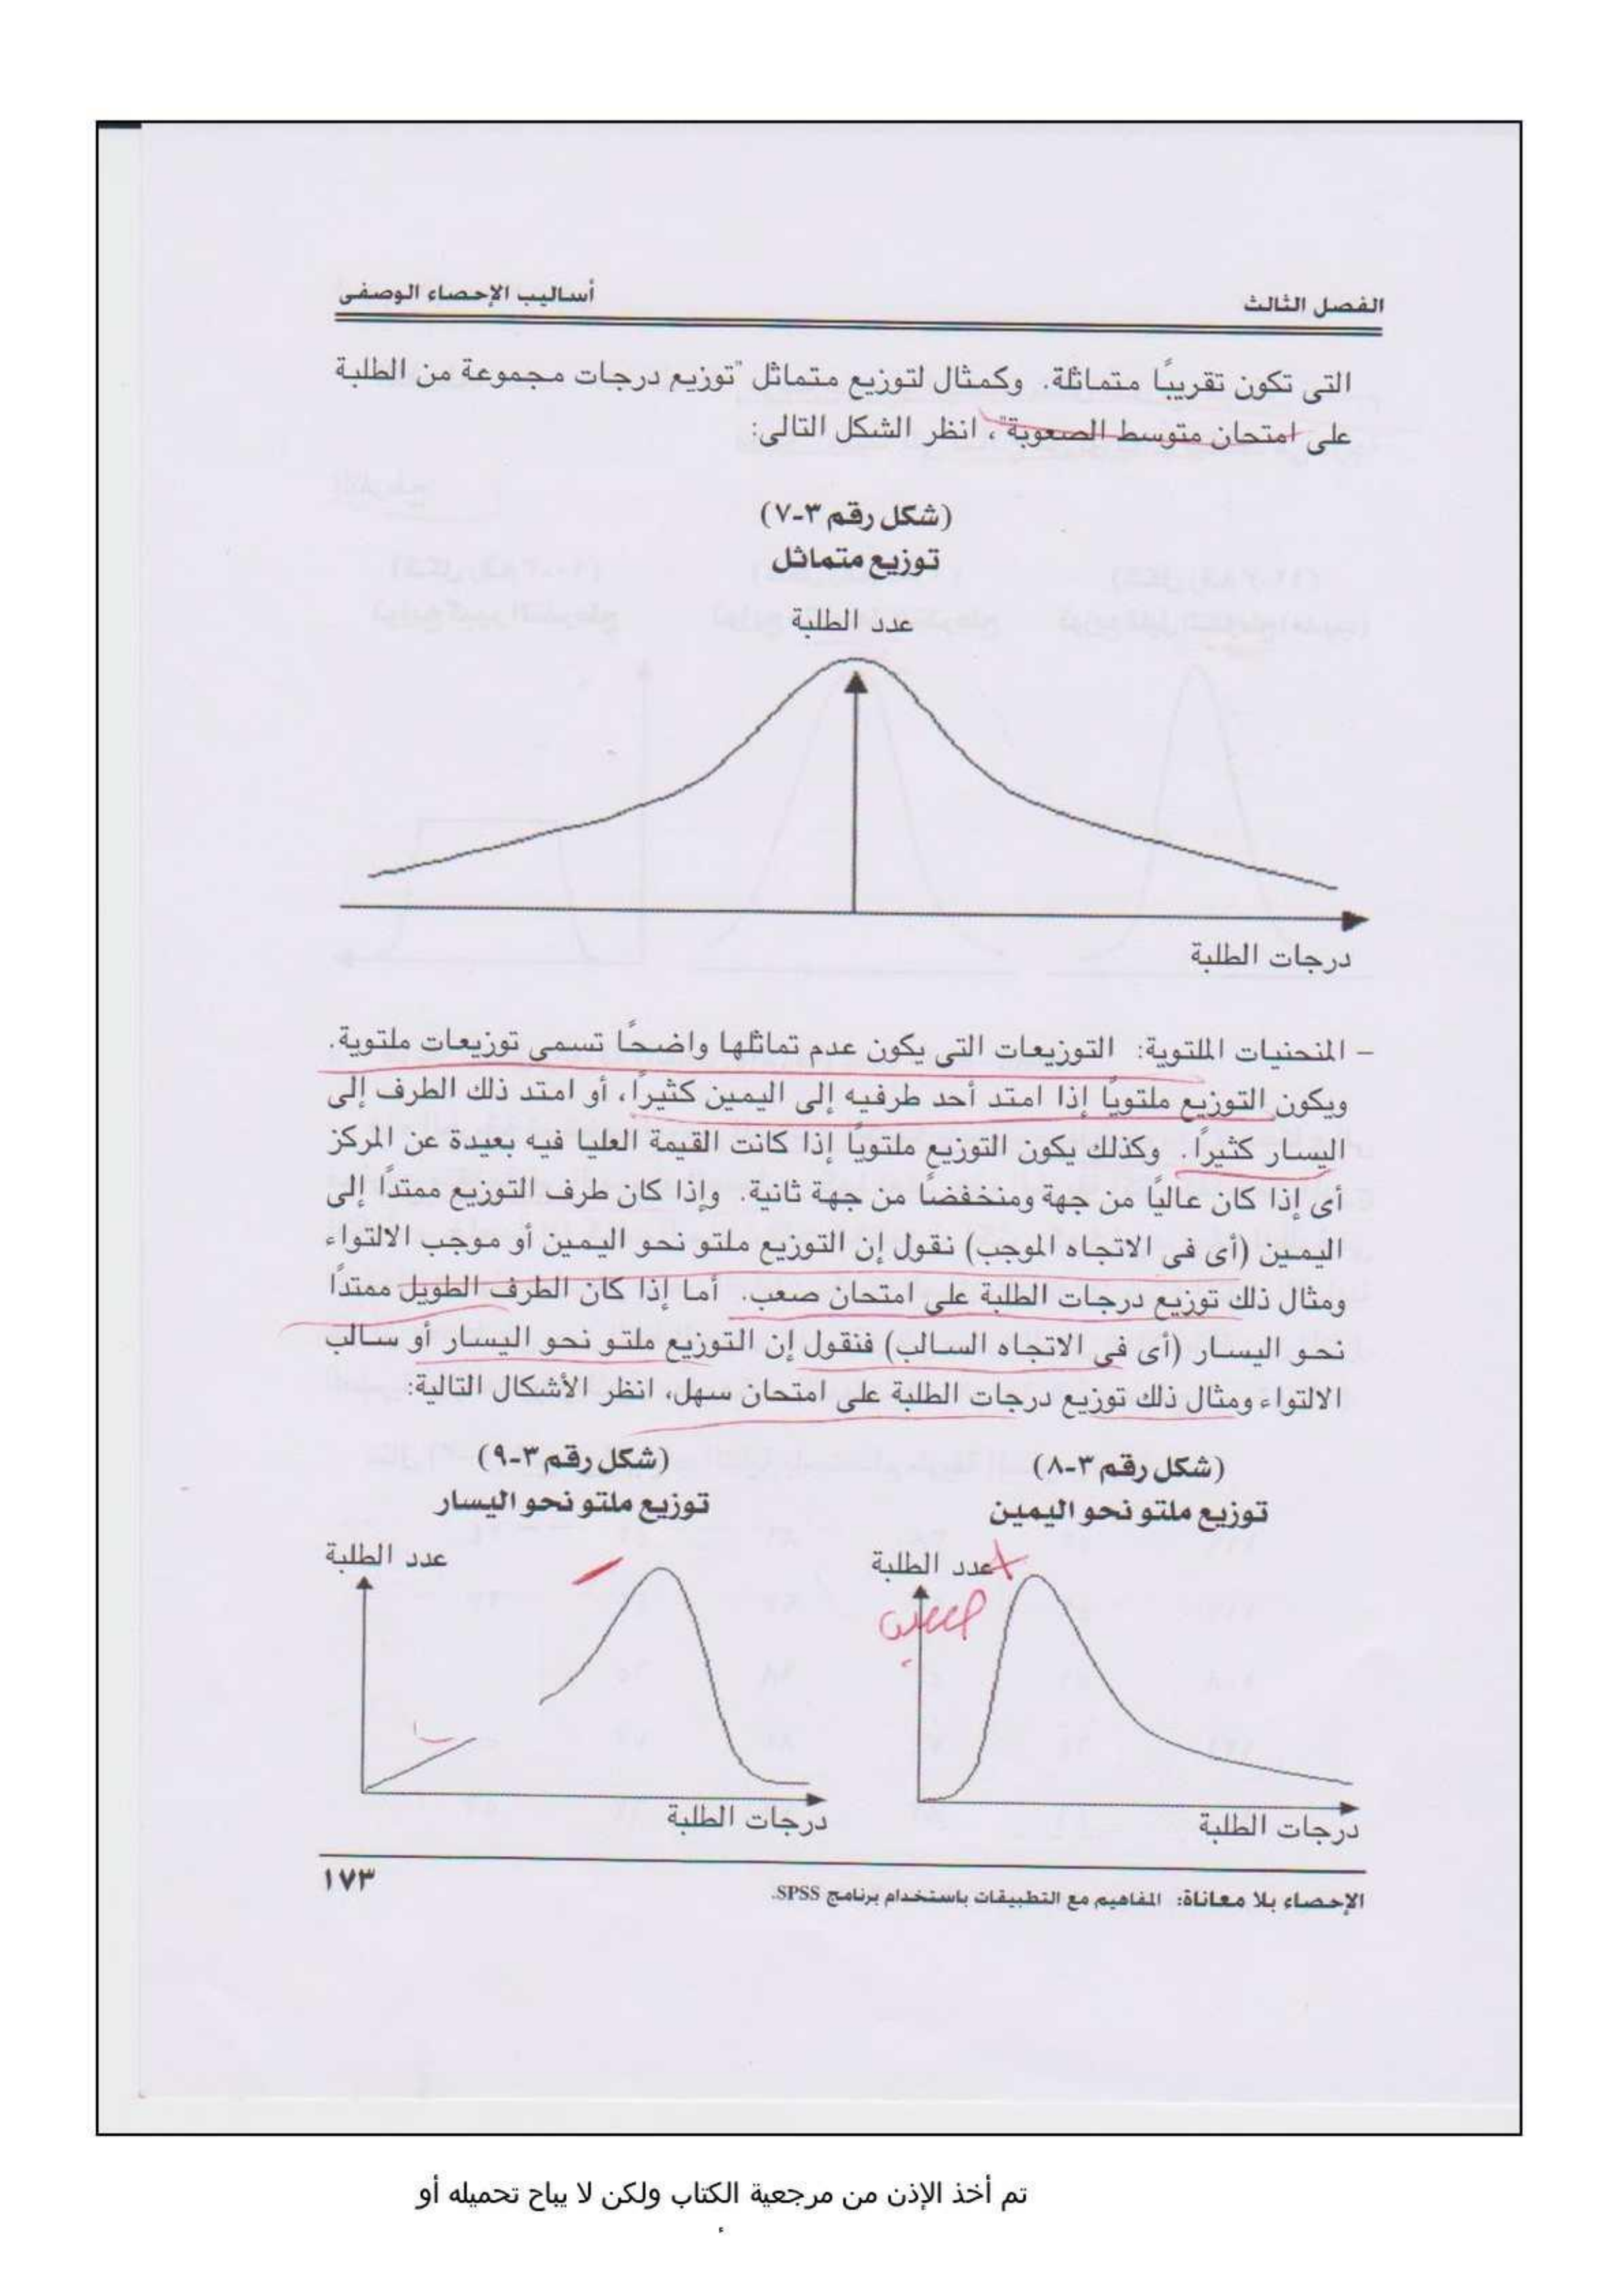 الفصل الثالث
أساليب الإحصاء الوصفى
التى تكون تقريبًا متماثلة. وكمثال لتوزيع متماثل "توزيع درجات مجموعة من الطلبة
على امتحان متوسط الصعوبة"، انظر الشكل التالى:
(شكل رقم ٣-٧)
توزيع متماثل
عدد الطلبة
درجات الطلبة
– المنحنيات الملتوية: التوزيعات التى يكون عدم تماثلها واضحًا تسمى توزيعات ملتوية.
ويكون التوزيع ملتويًا إذا امتد أحد طرفيه إلى اليمين كثيرًا، أو امتد ذلك الطرف إلى
اليسار كثيرًا. وكذلك يكون التوزيع ملتويًا إذا كانت القيمة العليا فيه بعيدة عن المركز
أى إذا كان عاليًا من جهة ومنخفضًا من جهة ثانية. وإذا كان طرف التوزيع ممتدًا إلى
اليمين (أى فى الاتجاه الموجب) نقول إن التوزيع ملتو نحو اليمين أو موجب الالتواء
ومثال ذلك توزيع درجات الطلبة على امتحان صعب. أما إذا كان الطرف الطويل ممتدًا
نحو اليسار (أى فى الاتجاه السالب) فنقول إن التوزيع ملتو نحو اليسار أو سالب
الالتواء ومثال ذلك توزيع درجات الطلبة على امتحان سهل، انظر الأشكال التالية:
(شكل رقم ٣-٨)
توزيع ملتو نحو اليمين
عدد الطلبة
درجات الطلبة
(شكل رقم ٣-٩)
توزيع ملتو نحو اليسار
عدد الطلبة
درجات الطلبة
الإحصاء بلا معاناة: المفاهيم مع التطبيقات باستخدام برنامج SPSS.
١٧٣
تم أخذ الإذن من مرجعية الكتاب ولكن لا يباح تحميله أو